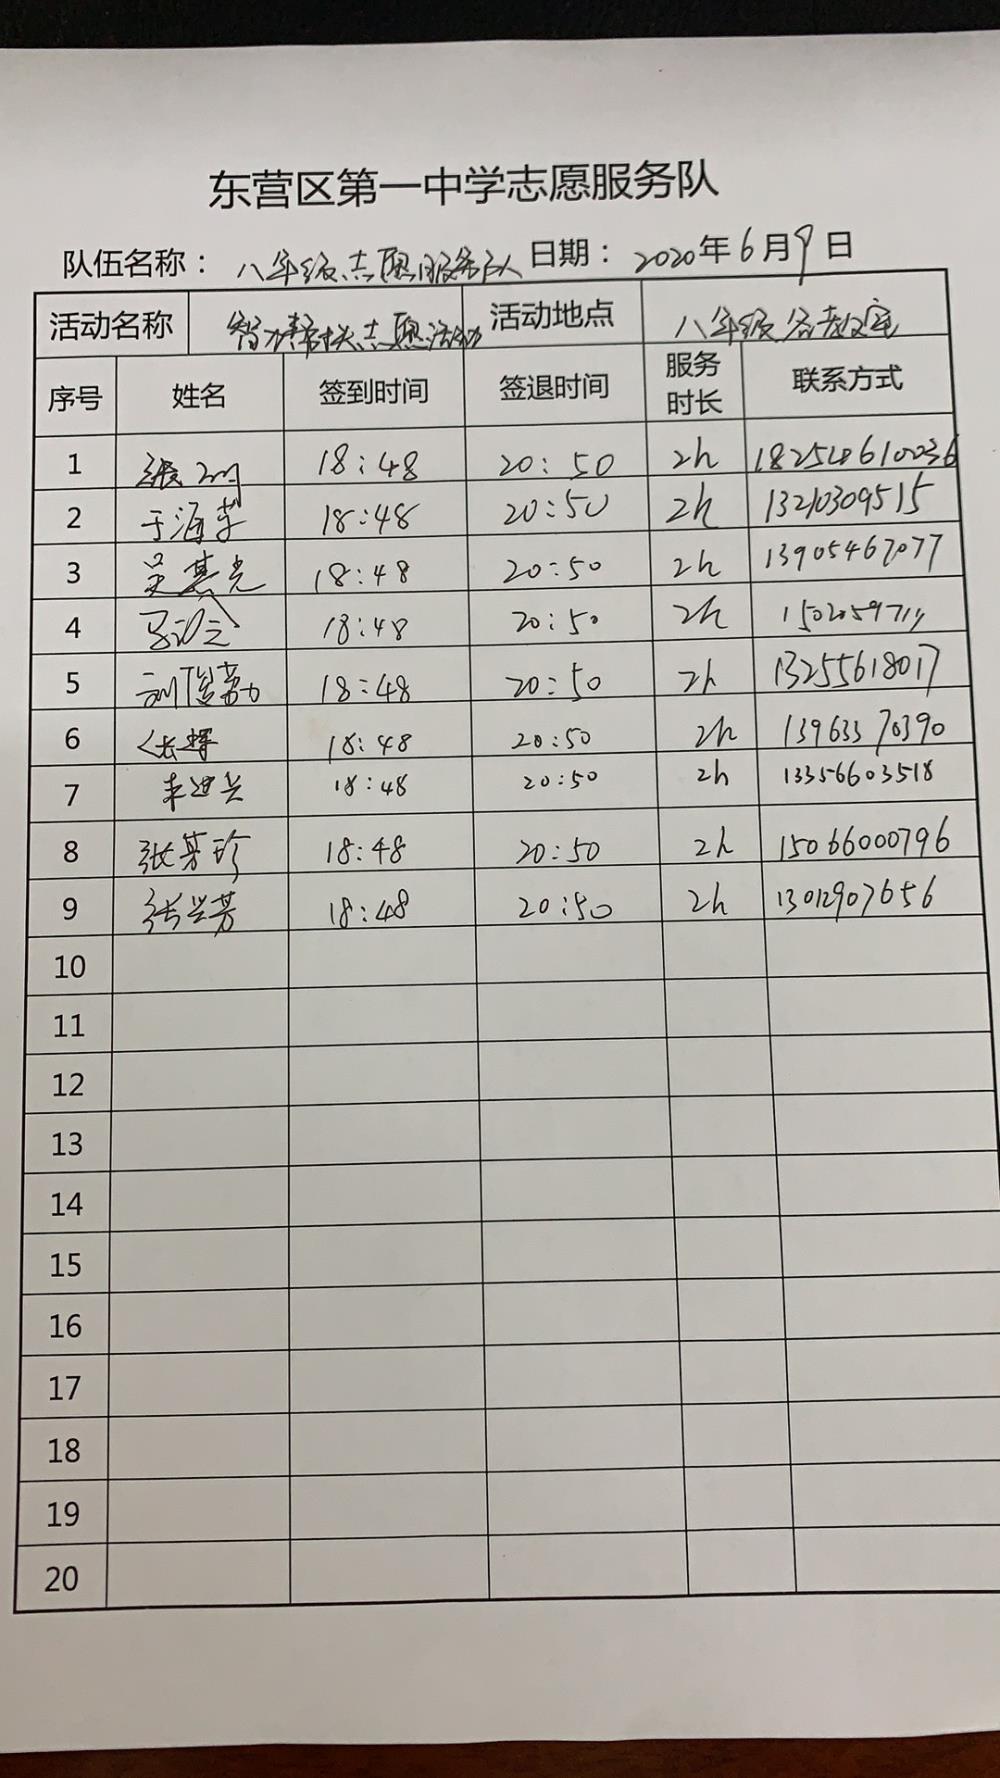 东营区第一中学志愿服务队
队伍名称： 八年级志愿服务队 日期： 2020年6月9日
活动名称 智力帮扶志愿活动 活动地点 八年级各教室
序号 姓名 签到时间 签退时间 服务时长 联系方式
1 18:48 20:50 2h 18254610036
2 于海苹 18:48 20:50 2h 13210309515
3 吴其光 18:48 20:50 2h 13905467077
4 18:48 20:50 2h
5 18:48 20:50 2h 13255618017
6 18:48 20:50 2h 13963370390
7 18:48 20:50 2h 13356603518
8 张芳珍 18:48 20:50 2h 15066000796
9 张兰芳 18:48 20:50 2h 13012907656
10
11
12
13
14
15
16
17
18
19
20